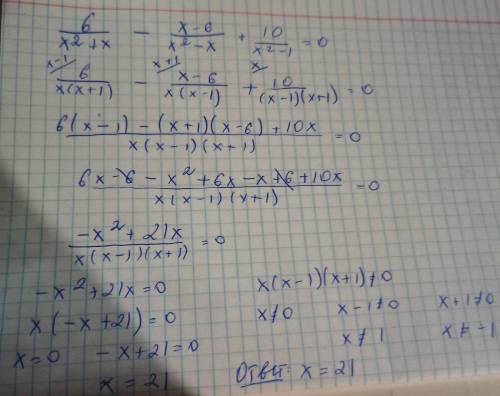 6/(x²+x) - (x-6)/(x²-x) + 10/(x²-1) = 0
x-1/ 6/(x(x+1)) - x+1/ (x-6)/(x(x-1)) + x/ 10/((x-1)(x+1)) = 0
(6(x-1) - (x+1)(x-6) + 10x)/(x(x-1)(x+1)) = 0
(6x-6-x²+6x-x+6+10x)/(x(x-1)(x+1)) = 0
(-x²+21x)/(x(x-1)(x+1)) = 0
-x²+21x=0 x(x-1)(x+1)≠0
x(-x+21)=0 x≠0 x-1≠0 x+1≠0
x=0 -x+21=0 x≠1 x≠-1
x=21 Ответ: x=21